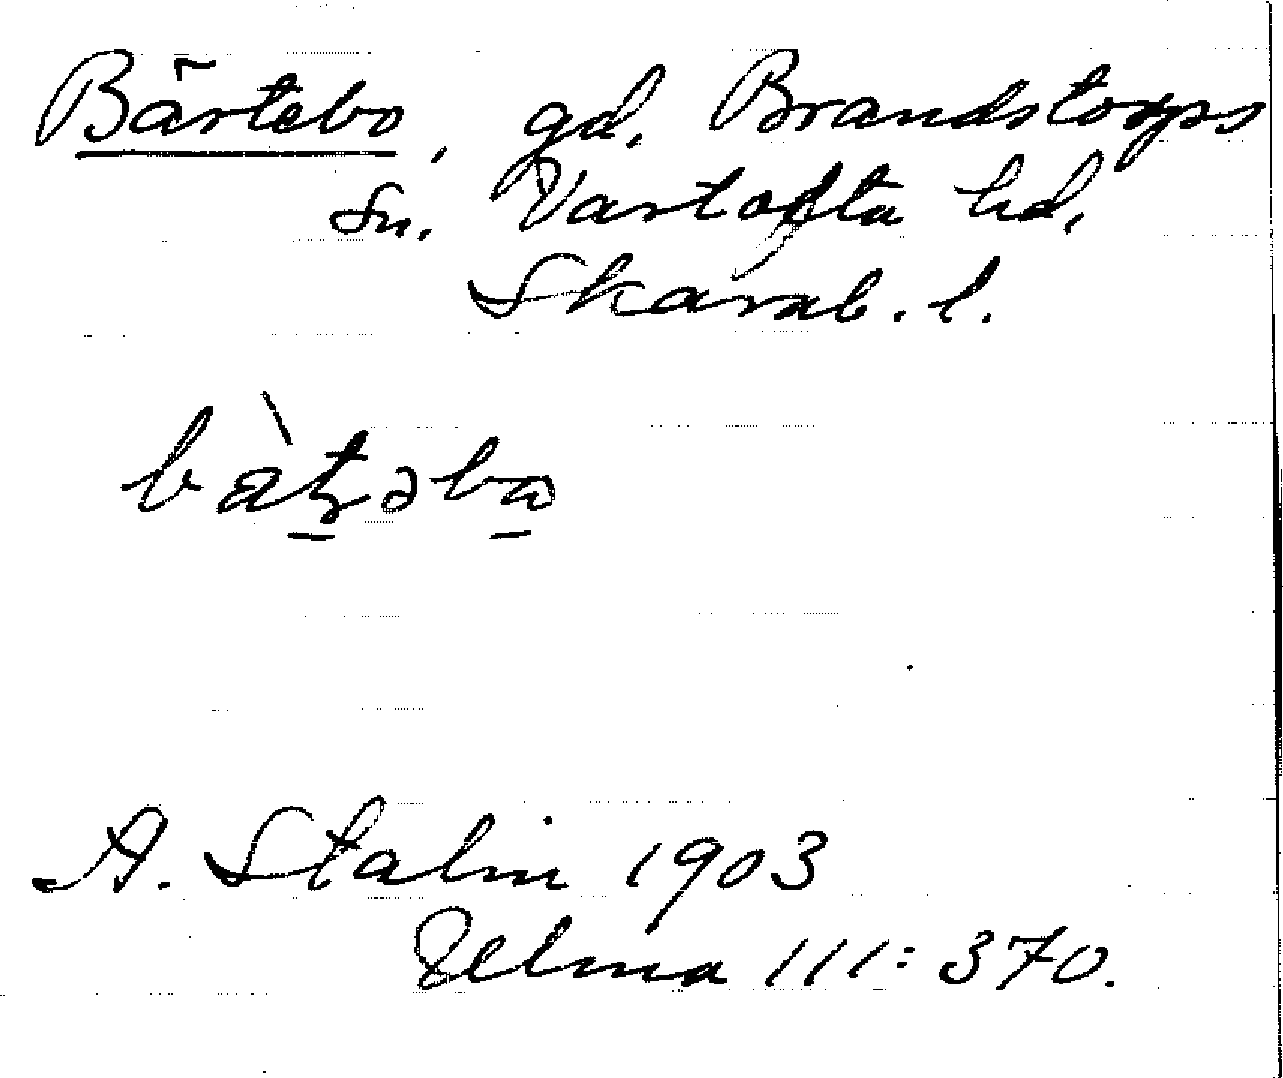 Bärtebo, gd. Brandstorps
sn. Vartofta hd,
Skarab. l.
A. Stalin 1903
Ulma 111: 370.